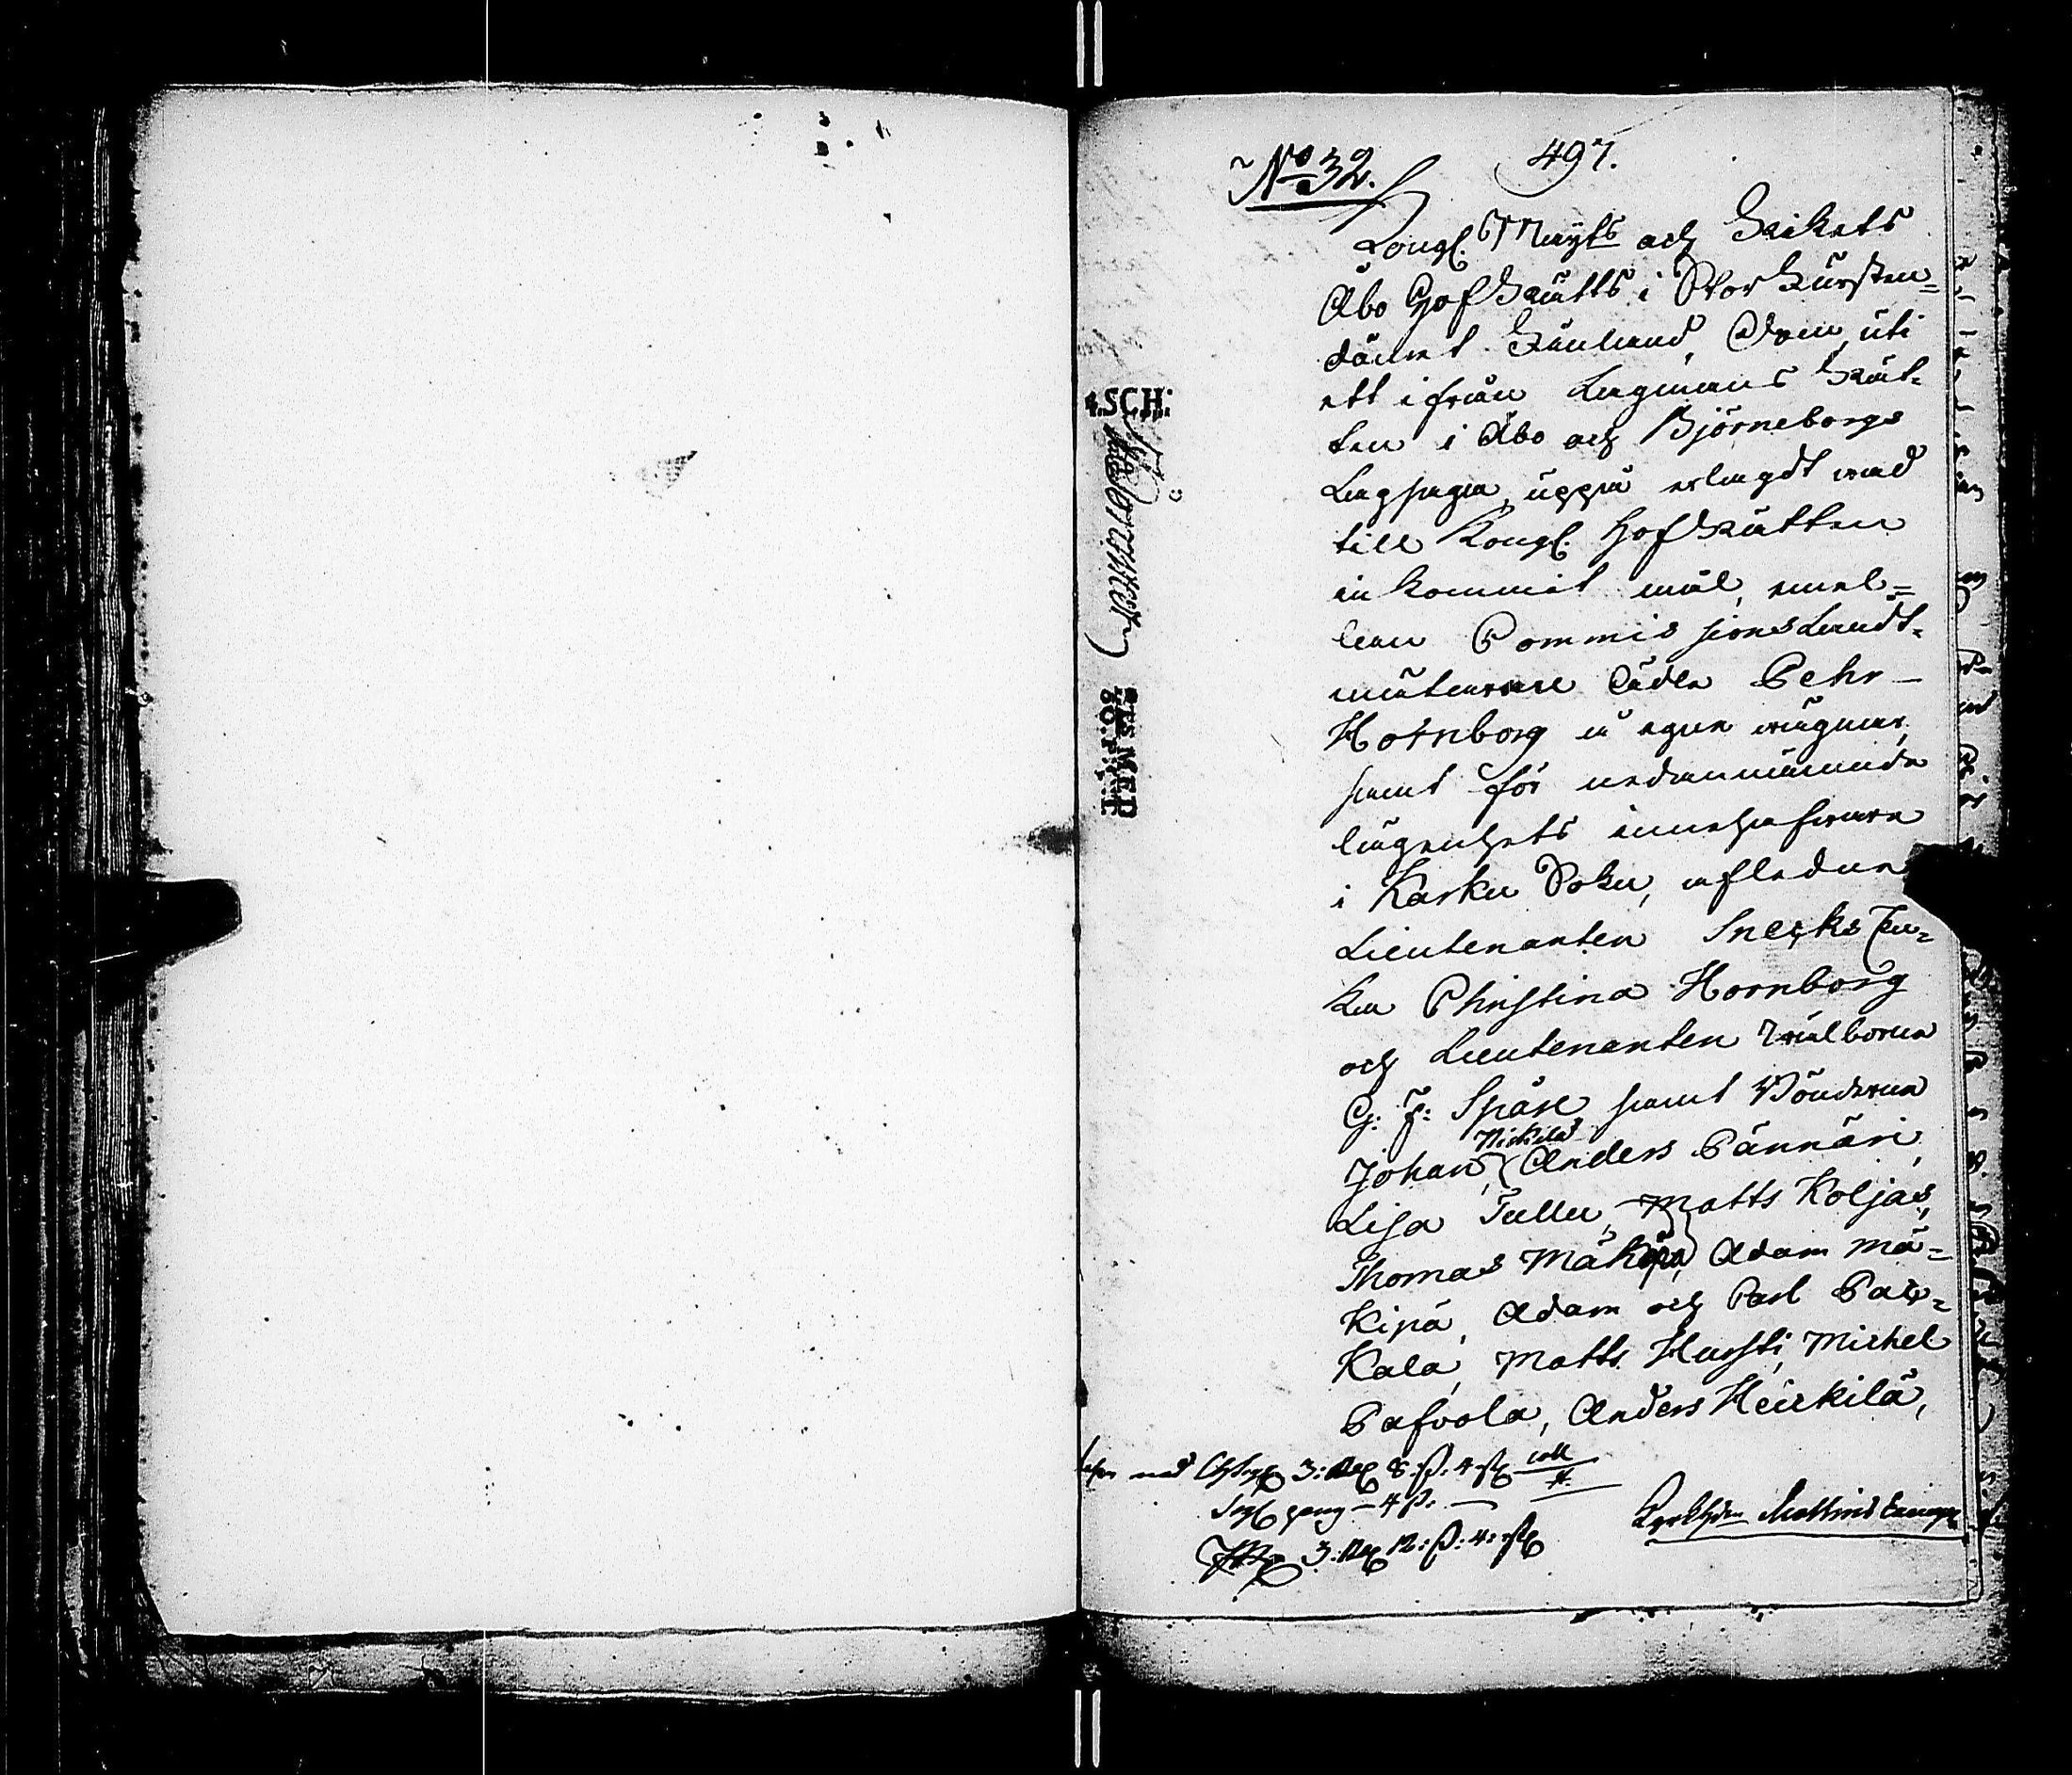 No 32.
497.
Kongl. Mayts och Rikets
Åbo HofRätts i StorFursten=
dömet Finland, Dom, uti
ett ifrån Lagmans Rät=
ten i Åbo och Björneborgs
Lagsaga, uppå erlagdt wad
till Kongl. HofRätten
inkommit mål, emel=
lan Commissions Landt=
mätaren Ädle Pehr
Hornborg å egna wägnar,
samt för nedannämnde
lägenhets innehafware
i Karku Sokn, afledne
Lieutenanten Snecks En=
ka Christina Hornborg
och Lieutenanten Wälborne
G: F: Spåre samt Bönderne
Nickilä
Johan, Anders Pännäri,
Lisa Tullu, Matts Koljas,
Thomas Mäkipä, Adam Mä=
kipä, Adam och Carl Pac=
kala, Matts Hursti, Michel
Pafvola, Anders Heickilä,
3: 8: s: 4
4 s.
3: 12: s: 4:
SCH:
MED